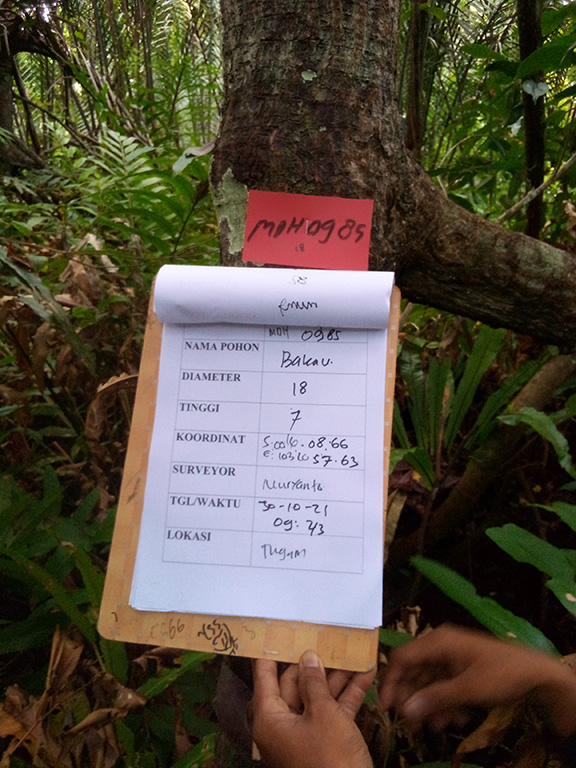 MDH 0985
18
MDH 0985
NAMA POHON Bakau.
DIAMETER 18
TINGGI 7
KOORDINAT S:0010.08.66
E:10310 57.63
SURVEYOR Nuryanto
TGL/WAKTU 30-10-21
09:43
LOKASI